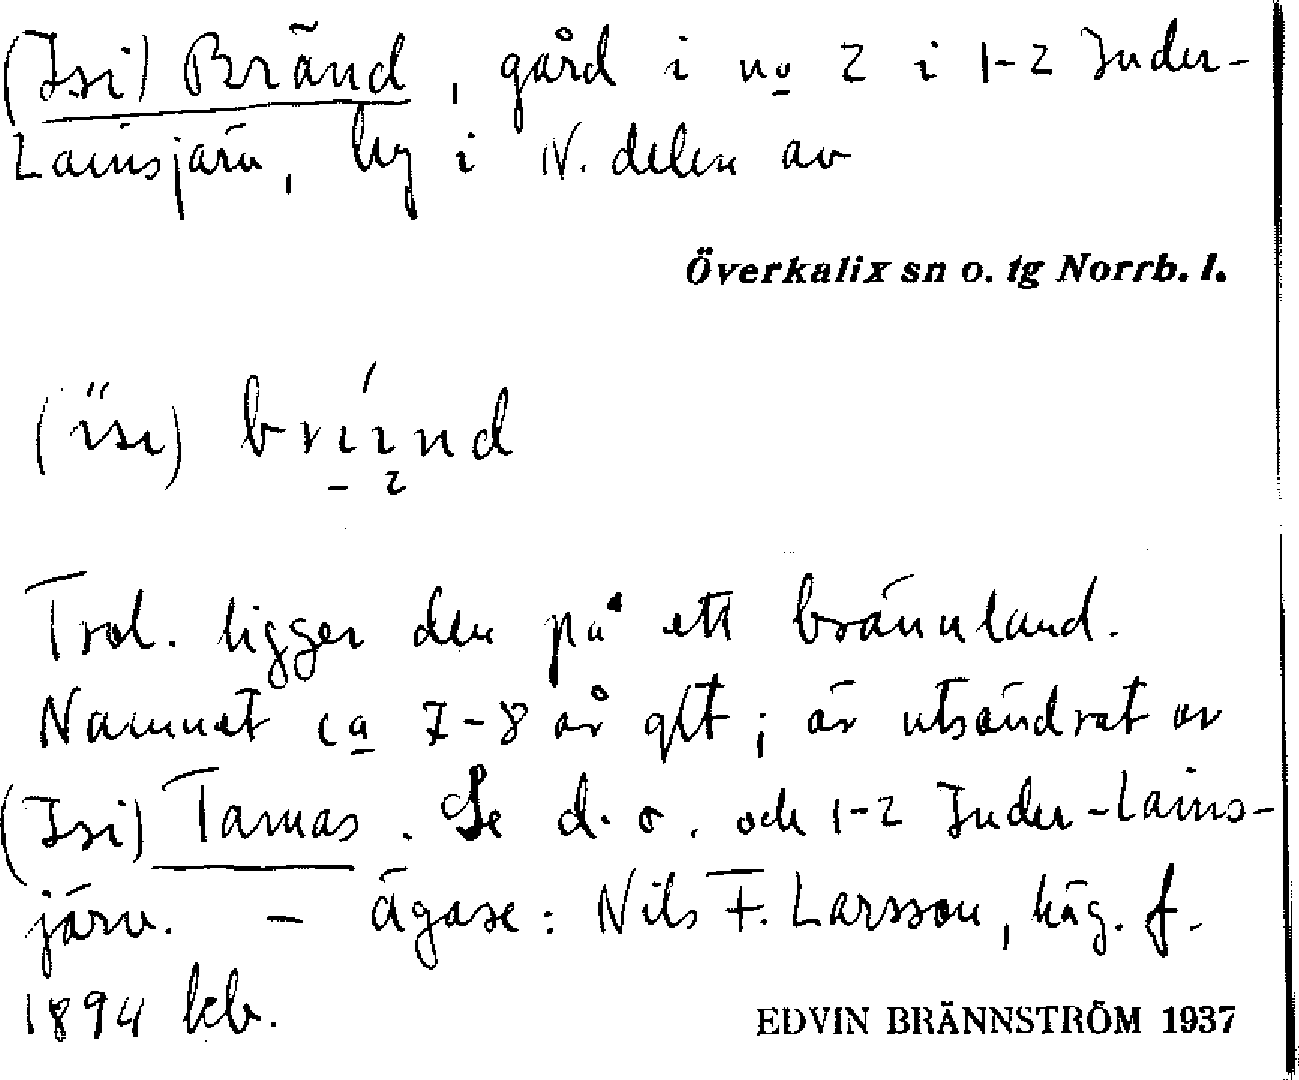 (Isi) Bränd, gård i no 2 i 1-2 Inder-
Lainsjärv, by i N. delen av
Överkalix sn o. tg Norrb. l.
Trol. ligger den på ett brännland.
Namnet ca 7-8 år glt; är utsöndrat av
(Isi) Tarmas. Se d. o. och 1-2 Inder-Lains-
järv. - Ägare: Nils F. Larsson, häg. f.
1894 kb.
EDVIN BRÄNNSTRÖM 1937